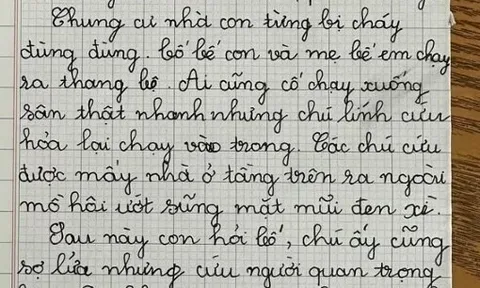 Chung cư nhà con từng bị cháy
đùng đùng. Bố bế con và mẹ bế em chạy
ra thang bộ. Ai cũng cố chạy xuống
sân thật nhanh nhưng chú lính cứu
hỏa lại chạy vào trong. Các chú cứu
được mấy nhà ở tầng trên ra ngoài
mồ hôi ướt sũng mặt mũi đen xì.
Sau này con hỏi bố, chú ấy cũng
sợ lửa nhưng cứu người quan trọng